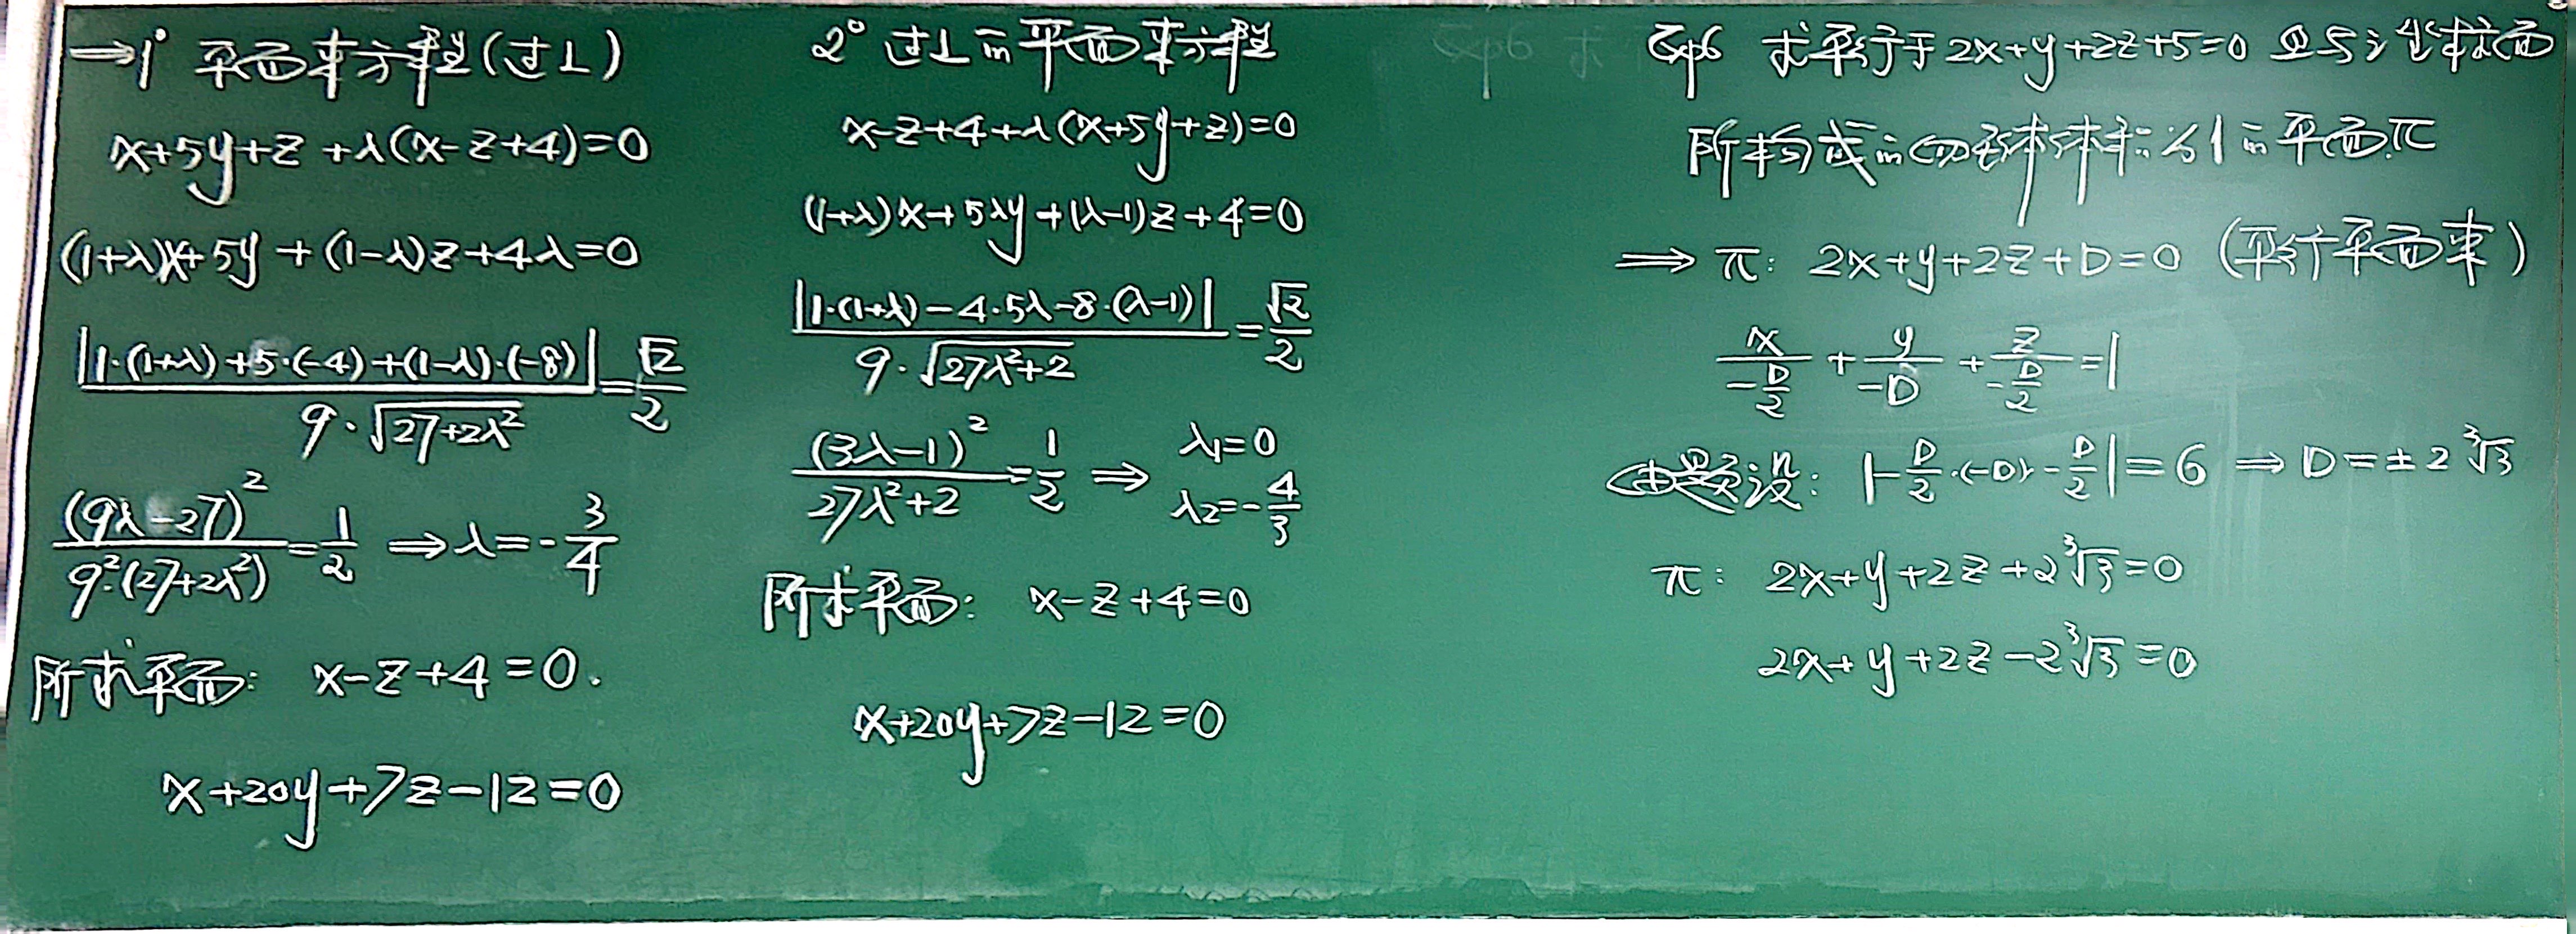 ⟹1° 平面束方程(过L)
x+5y+z+λ(x-z+4)=0
(1+λ)x+5y+(1-λ)z+4λ=0
|1·(1+λ)+5·(-4)+(1-λ)·(-8)| / 9·√(27+2λ²) = √2/2
(9λ-27)² / 9²·(27+2λ²) = 1/2 ⟹ λ=-3/4
所求平面: x-z+4=0.
x+20y+7z-12=0
2° 过L的平面束方程
x-z+4+λ(x+5y+z)=0
(1+λ)x+5λy+(λ-1)z+4=0
|1·(1+λ)-4·5λ-8·(λ-1)| / 9·√(27λ²+2) = √2/2
(3λ-1)² / 27λ²+2 = 1/2 ⟹ λ1=0 λ2=-4/3
所求平面: x-z+4=0
x+20y+7z-12=0
Exp6 求平行于2x+y+2z+5=0且与三坐标面
所构成的四面体体积为1的平面π
⟹ π: 2x+y+2z+D=0 (平行平面束)
x/(-D/2) + y/(-D) + z/(-D/2) = 1
由题设: |-D/2·(-D)·-D/2|=6 ⟹ D=±2∛3
π: 2x+y+2z+2∛3=0
2x+y+2z-2∛3=0